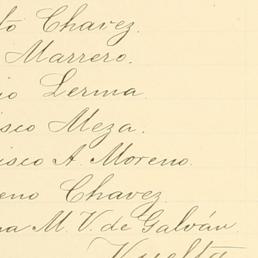 to Chavez.
Marrero.
io Lerma.
isco Meza.
isco A. Moreno.
eno Chavez
na M. V. de Galván.
Vuelta